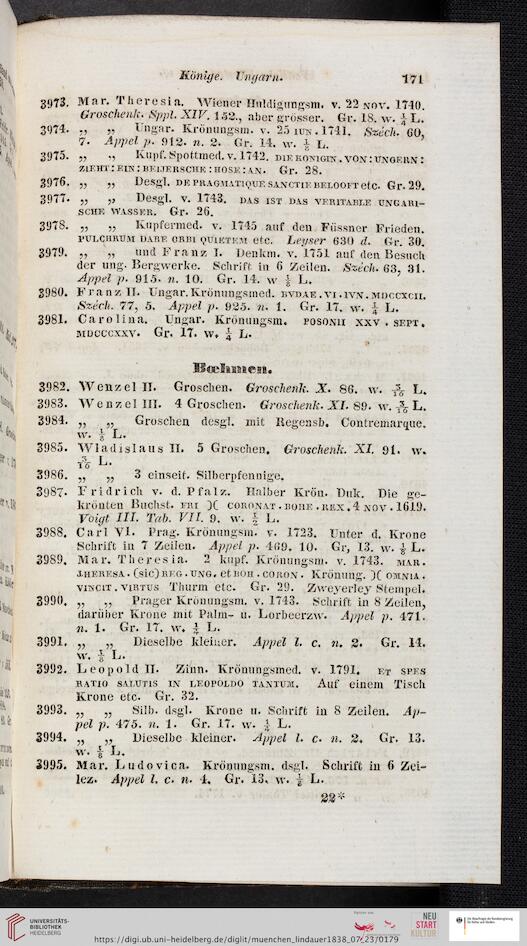 Könige. Ungarn. 171
3973. Mar. Theresia. Wiener Huldigungsm. v. 22 NOV. 1740.
Groschenk. Sppl. XIV. 152., aber grösser. Gr. 18. w. 1/4 L.
3974. „ „ Ungar. Krönungsm. v. 25 IUN. 1741. Széch. 60,
7. Appel p. 912. n. 2. Gr. 14. w. 1/8 L.
3975. „ „ Kupf. Spottmed. v. 1742. DIE KONIGIN . VON : UNGERN :
ZIEHT : EIN : BEIJERSCHE : HOSE : AN. Gr. 28.
3976. „ „ Desgl. DE PRAGMATIQUE SANCTIE BELOOFT etc. Gr. 29.
3977. „ „ Desgl. v. 1743. DAS IST DAS VERITABLE UNGARI-
SCHE WASSER. Gr. 26.
3978. „ „ Kupfermed. v. 1745 auf den Füssner Frieden.
PULCHRUM DARE ORBI QUIETEM etc. Leyser 630 d. Gr. 30.
3979. „ „ und Franz I. Denkm. v. 1751 auf den Besuch
der ung. Bergwerke. Schrift in 6 Zeilen. Széch. 63, 31.
Appel p. 915. n. 10. Gr. 14. w 1/8 L.
3980. Franz II. Ungar. Krönungsmed. BVDAE . VI . IVN . MDCCXCII.
Széch. 77, 5. Appel p. 925. n. 1. Gr. 17. w. 1/4 L.
3981. Carolina. Ungar. Krönungsm. POSONII XXV . SEPT.
MDCCCXXV. Gr. 17. w. 1/4 L.
Bœhmen.
3982. Wenzel II. Groschen. Groschenk. X. 86. w. 3/16 L.
3983. Wenzel III. 4 Groschen. Groschenk. XI. 89. w. 3/16 L.
3984. „ „ Groschen desgl. mit Regensb. Contremarque.
w. 1/8 L.
3985. Wladislaus II. 5 Groschen. Groschenk. XI. 91. w.
3/16 L.
3986. „ „ 3 einseit. Silberpfennige.
3987. Fridrich v. d. Pfalz. Halber Krön. Duk. Die ge-
krönten Buchst. FRI )( CORONAT . BOHE . REX . 4 NOV . 1619.
Voigt III. Tab. VII. 9. w. 1/2 L.
3988. Carl VI. Prag. Krönungsm. v. 1723. Unter d. Krone
Schrift in 7 Zeilen. Appel p. 469. 10. Gr, 13. w. 1/8 L.
3989. Mar. Theresia. 2 kupf. Krönungsm. v. 1743. MAR .
THERESA . (sic) REG . UNG. et BOH . CORON . Krönung. )( OMNIA .
VINCIT . VIRTUS Thurm etc. Gr. 29. Zweyerley Stempel.
3990. „ „ Prager Krönungsm. v. 1743. Schrift in 8 Zeilen,
darüber Krone mit Palm- u. Lorbeerzw. Appel p. 471.
n. 1. Gr. 17. w. 1/4 L.
3991. „ „ Dieselbe kleiner. Appel l. c. n. 2. Gr. 14.
w. 1/8 L.
3992. Leopold II. Zinn. Krönungsmed. v. 1791. ET SPES
RATIO SALUTIS IN LEOPOLDO TANTUM. Auf einem Tisch
Krone etc. Gr. 32.
3993. „ „ Silb. dsgl. Krone u. Schrift in 8 Zeilen. Ap-
pel p. 475. n. 1. Gr. 17. w. 1/4 L.
3994. „ „ Dieselbe kleiner. Appel l. c. n. 2. Gr. 13.
w. 1/8 L.
3995. Mar. Ludovica. Krönungsm. dsgl. Schrift in 6 Zei-
lez. Appel l. c. n. 4. Gr. 13. w. 1/8 L.
22*
UNIVERSITÄTS-
BIBLIOTHEK
HEIDELBERG
NEU
START
KULTUR
https://digi.ub.uni-heidelberg.de/diglit/muenchen_lindauer1838_07_23/0179